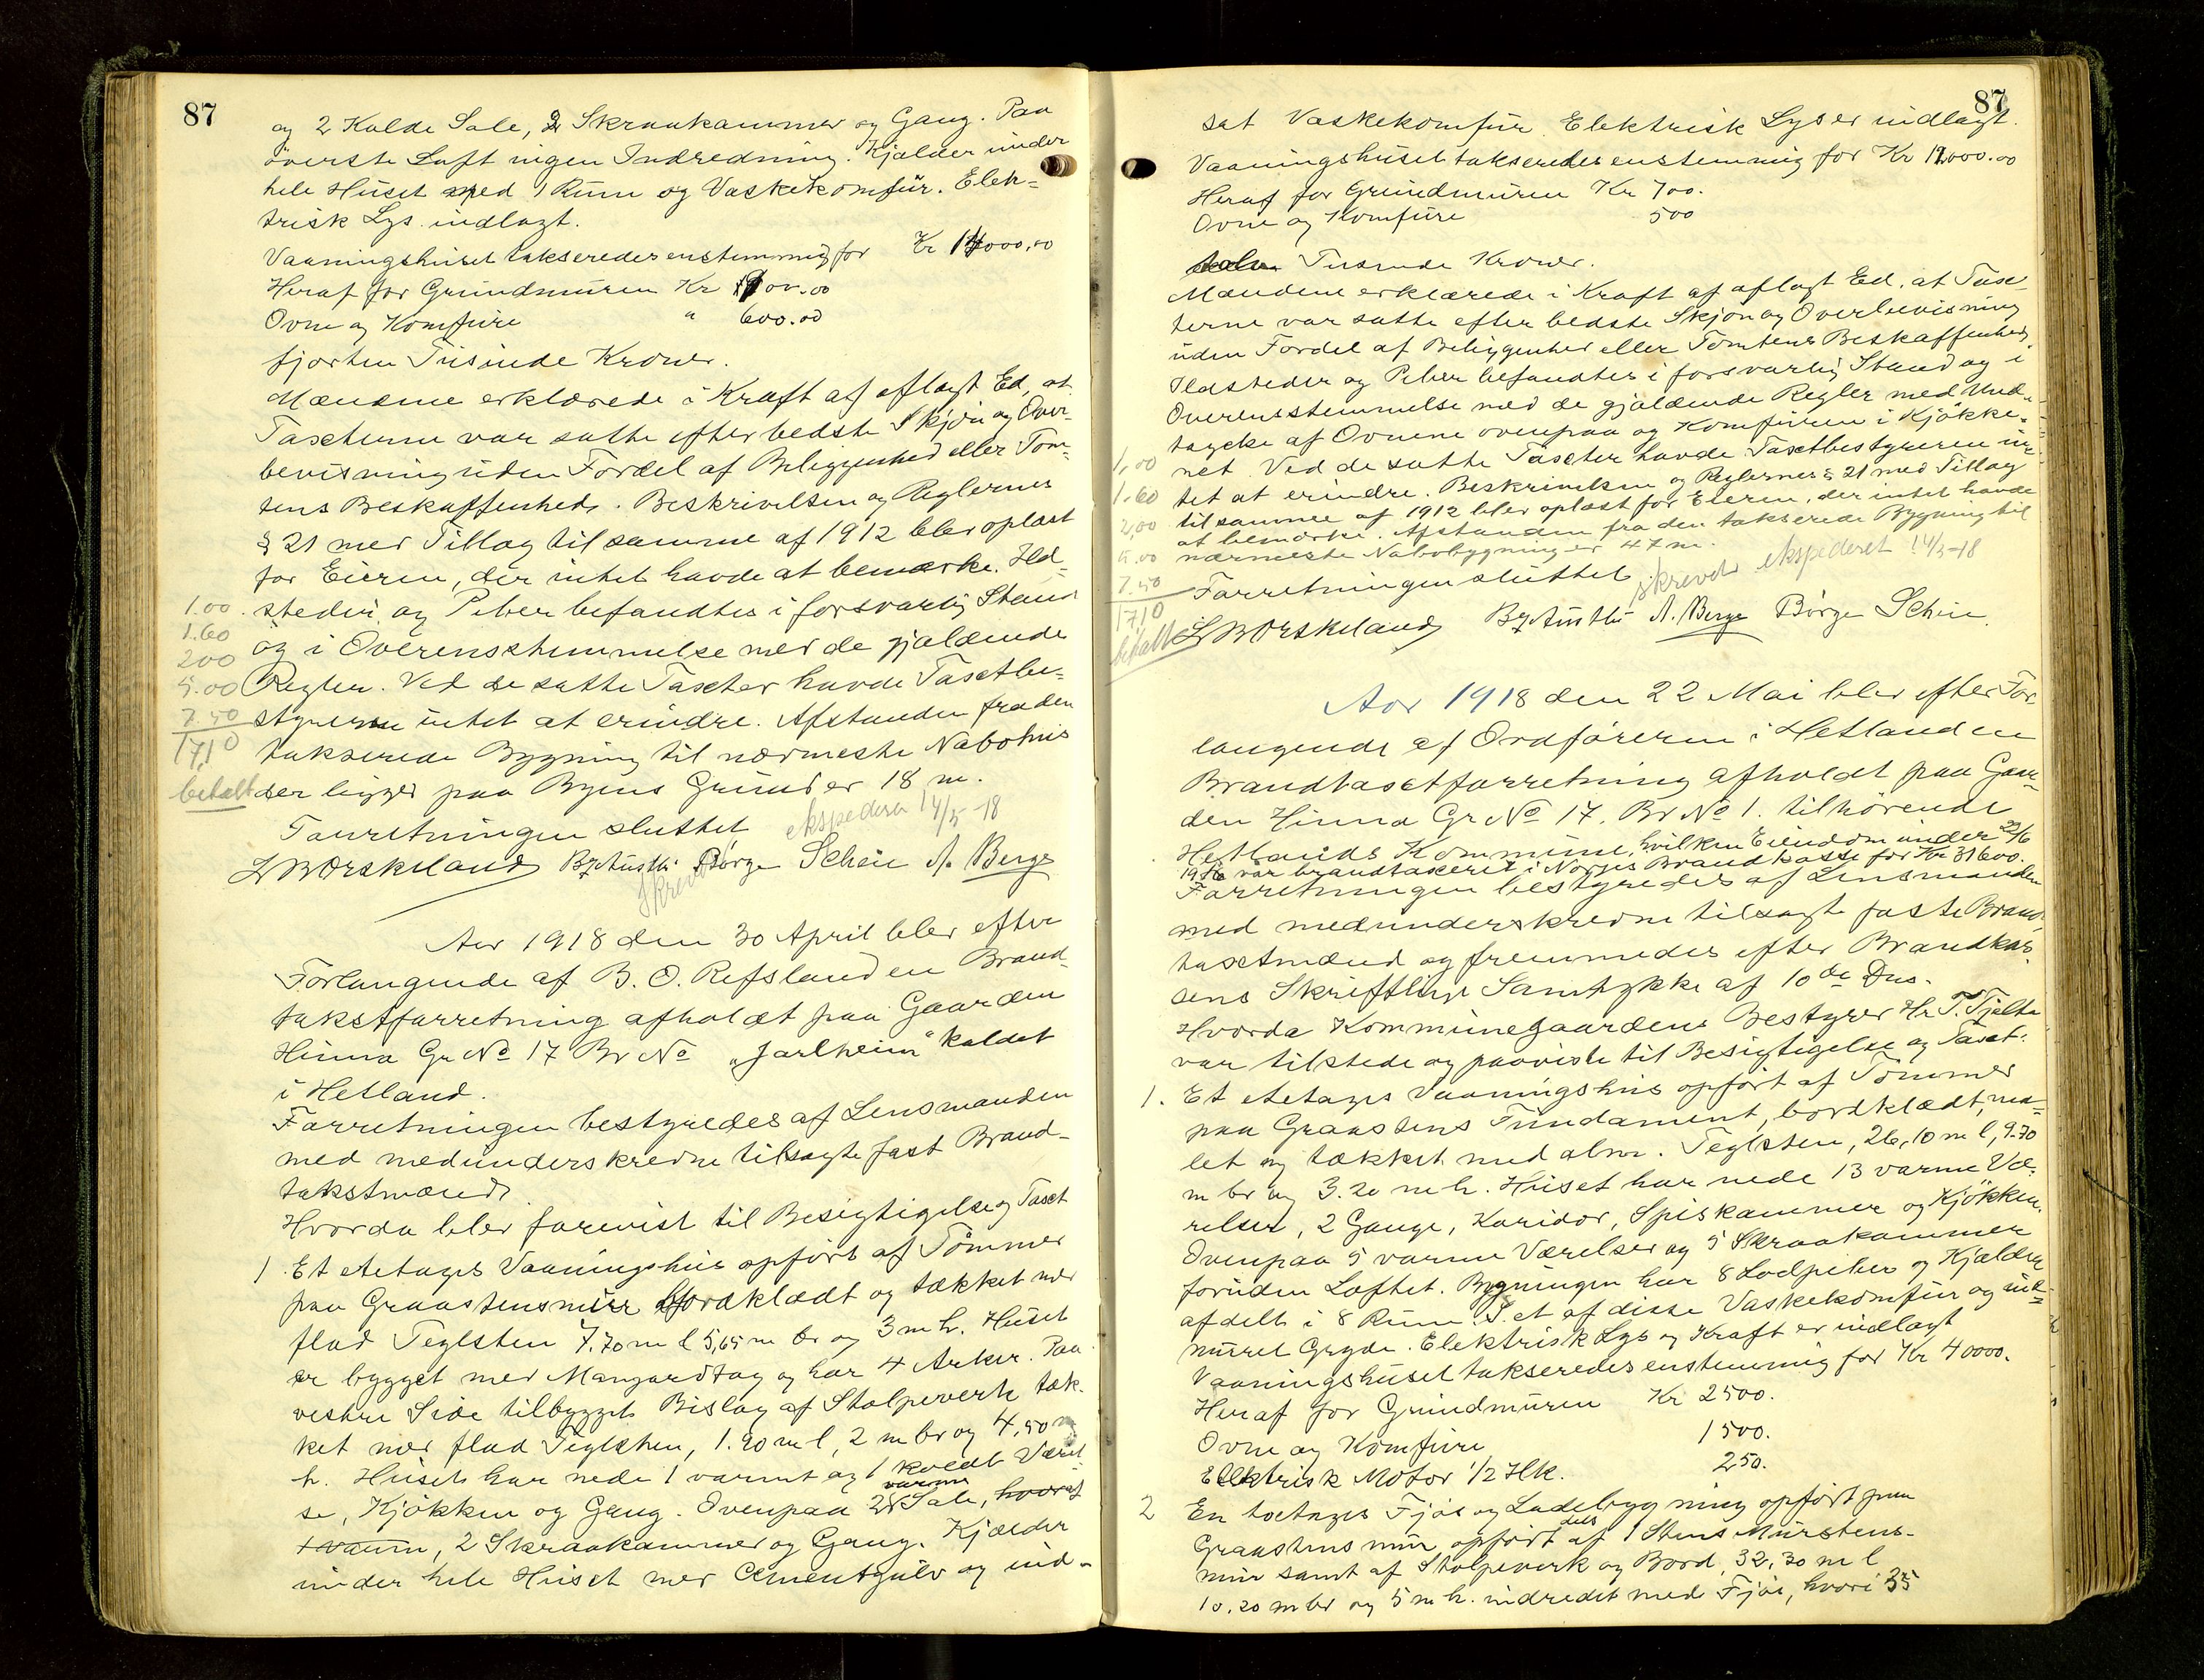 87
og 2 Kolde Sale, 2 Skraakammer og Gang. Paa
överste Loft ingen Indredning. Kjælder under
hele Huset med 1 Rum og Vaskekomfür. Elek-
trisk Lys indlagt.
Vaaningshuset takseredes enstemmig for Kr 14000.00
Heraf for Grundmuren Kr 00.00
Ovne og Komfüre " 600.00
fjorten Tusinde Kroner.
Mændene erklærede i Kraft af aflagt Ed, at
Taxterne var satte efter bedste Skjön og Over-
bevisning uden Fordel af Beliggenhed eller Tom-
tens Beskaffenhed. Beskrivelsen og Reglernes
§ 21 med Tillæg til samme af 1912 blev oplæst
for Eieren, der intet havde at bemærke. Ild-
1.00. steder og Piber befandtes i forsvarlig Stand
1.60 og i Overensstemmelse med de gjældende
200
5.00 Regler. Ved de satte Taxter havde Taxtbe-
7.50 styreren intet at erindre. Afstanden fra den
17,10 takserede Bygning til nærmeste Nabohus
betalt der ligger paa Byens Grund er 18 m.
Forretningen sluttet ekspederet 14/5-18
L W Orskeland B. Austbö Börge Scheie A. Berge
Skrevet
Aar 1918 den 30 April blev efter
Forlangende af B. O. Refsland en Brand-
takstforretning afholdt paa Gaarden
Hinna Gr No 17 Br No "Jarlheim" kaldet
i Hetland.
Forretningen bestyredes af Lensmanden
med medunderskrevne tilsagte fast Brand-
takstmænd.
Hvorda blev forevist til Besigtigelse og Taxt
1. Et etetages Vaaningshus opfört af Tömmer
paa Graastensmur bordklædt og tækket med
flad Teglsten 7.70 m l 5,65 m br og 3 m h. Huset
er bygget med Mansardtag og har 4 Arker. Paa
vestre Side tilbygget Bislag af Stolpeverk tæk-
ket med flad Teglsten, 1.90 m l, 2 m br og 4,50 m
h. Huset har nede 1 varmt og 1 koldt Værel-
se, Kjökken og Gang. Ovenpaa 2 varme Sale, hvoraf
1 varm, 2 Skraakammer og Gang. Kjælder
under hele Huset med Cementgulv og ind-
87
sat Vaskekomfür. Elektrisk Lys er indlagt.
Vaaningshuset takseredes enstemmig for Kr 12000.00
Heraf for Grundmuren Kr 700.
Ovne og Komfüre 500
tolv Tusinde Kroner.
Mændene erklærede i Kraft af aflagt Ed, at Tax-
terne var satte efter bedste Skjön og Overbevisning
uden Fordel af Beliggenhed eller Tomtens Beskaffenhed.
Ildsteder og Piber befandtes i forsvarlig Stand og i
Overensstemmelse med de gjældende Regler med Und-
tagelse af Ovnene ovenpaa og Komfüren i Kjökke-
1,00 net. Ved de satte Taxter havde Taxtbestyreren in-
1.60 tet at erindre. Beskrivelsen og Reglernes § 21 med Tillæg
2,00 til samme af 1912 blev oplæst for Eieren, der intet havde
at bemærke. Afstanden fra den takserede Bygning til
5.00 nærmeste Nabobygning er 47 m.
7.50 Forretningen sluttet. skrevet ekspederet 14/5-18
17,10
betalt L W Orskeland B. Austbö A. Berge Börge Scheie.
Aar 1918 den 22 Mai blev efter For-
langende af Ordföreren i Hetland en
Brandtaxtforretning afholdt paa Gaar-
den Hinna Gr No 17. Br No 1. tilhörende
Hetlands Kommune, hvilken Eiendom under 22/6
1916 var brandtakseret i Norges Brandkasse for Kr 31600.
Forretningen bestyredes af Lensmanden
med medunderskrevne tilsagte faste Brand-
taxtmænd og fremmedes efter Brandkas-
sens Skriftlige Samtykke af 10de Dns.
Hvorda Kommunegaardens Bestyrer Hr T. Tjelta
var tilstede og paaviste til Besigtigelse og Taxt.
1. Et etetages Vaaningshus opfört af Tömmer
paa Graastens Fundament, bordklædt, ma-
let og tækket med alm. Teglsten, 26,10 m l, 9.70
m br og 3.20 m h. Huset har nede 13 varme Væ-
relser, 2 Gange, Koridor, Spiskammer og Kjökken.
Ovenpaa 5 varme Værelser og 5 Skraakammer
foruden Loftet. Bygningen har 8 Lodpiber og Kjælder
afdelt i 8 Rum. I et af disse Vaskekomfür og ind-
muret Gryde. Elektrisk Lys og Kraft er indlagt
Vaaningshuset takseredes enstemmig for Kr 40000.
Heraf for Grundmuren Kr 2500.
Ovne og Komfüre 1500.
Elektrisk Motor 1/2 HK. 250.
2 En toetages Fjös og Ladebygning opfört paa
Graastens mur opfört dels af 1 Stens Murstens-
mur samt af Stolpeverk og Bord, 32,30 m l
10.20 m br og 5 m h. indredet med Fjös, hvori 35